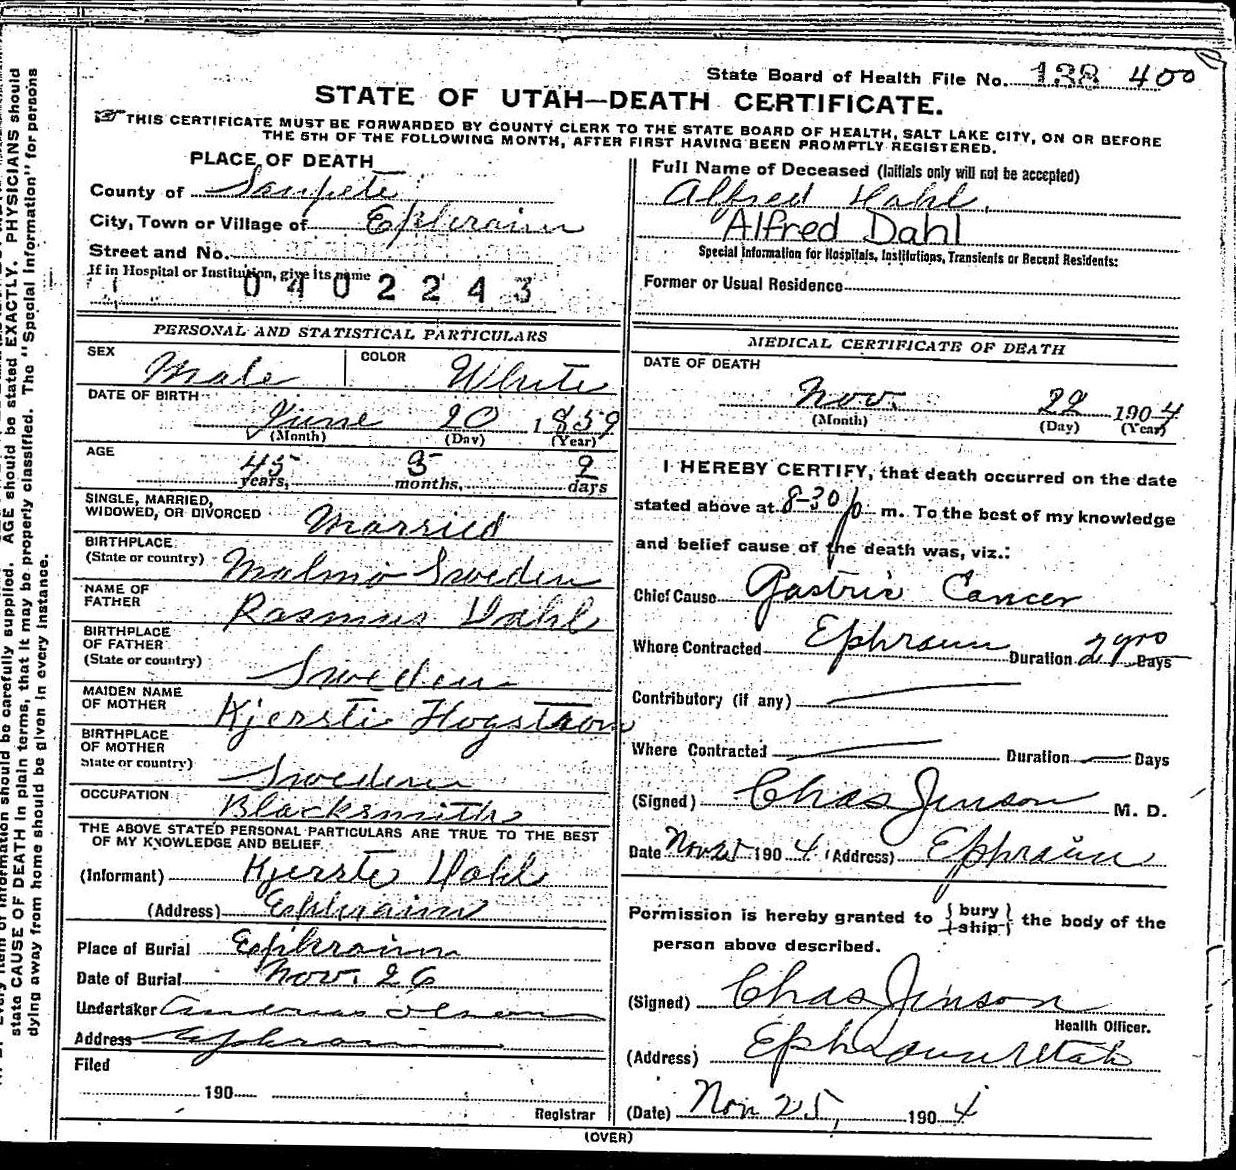 State Board of Health File No. 138 400
STATE OF UTAH—DEATH CERTIFICATE.
THIS CERTIFICATE MUST BE FORWARDED BY COUNTY CLERK TO THE STATE BOARD OF HEALTH, SALT LAKE CITY, ON OR BEFORE
THE 5TH OF THE FOLLOWING MONTH, AFTER FIRST HAVING BEEN PROMPTLY REGISTERED.
PLACE OF DEATH
County of Sanpete
City, Town or Village of Ephraim
Street and No.
If in Hospital or Institution, give its name
0402243
Full Name of Deceased (Initials only will not be accepted)
Alfred Dahl.
Alfred Dahl
Special Information for Hospitals, Institutions, Transients or Recent Residents:
Former or Usual Residence
PERSONAL AND STATISTICAL PARTICULARS
SEX Male COLOR White
DATE OF BIRTH June 20 1859
(Month) (Day) (Year)
AGE 45 years, 5 months, 2 days
SINGLE, MARRIED,
WIDOWED, OR DIVORCED Married
BIRTHPLACE
(State or country) Malmo Sweden
NAME OF
FATHER Rasmus Dahl
BIRTHPLACE
OF FATHER
(State or country) Sweden
MAIDEN NAME
OF MOTHER Kjersti Hogstrom
BIRTHPLACE
OF MOTHER
State or country) Sweden
OCCUPATION Blacksmith
THE ABOVE STATED PERSONAL PARTICULARS ARE TRUE TO THE BEST
OF MY KNOWLEDGE AND BELIEF.
(Informant) Kjerste Dahl
(Address) Ephraim
Place of Burial Ephraim
Date of Burial Nov. 26
Undertaker Andreas Olson
Address Ephraim
Filed
190
Registrar
MEDICAL CERTIFICATE OF DEATH
DATE OF DEATH
Nov. 22 1904
(Month) (Day) (Year)
I HEREBY CERTIFY, that death occurred on the date
stated above at 8-30 p m. To the best of my knowledge
and belief cause of the death was, viz.:
Chief Cause Gastric Cancer
Where Contracted Ephraim Duration 2 yrs Days
Contributory (if any)
Where Contracted Duration Days
(Signed) Chas Jenson M. D.
Date Nov 25 1904 (Address) Ephraim
Permission is hereby granted to {bury ship} the body of the
person above described.
(Signed) Chas Jenson
Health Officer.
(Address) Ephraim Utah
(Date) Nov 25, 1904
(OVER)
state CAUSE OF DEATH in plain terms, that it may be properly classified. The "Special Information" for persons
dying away from home should be given in every instance.